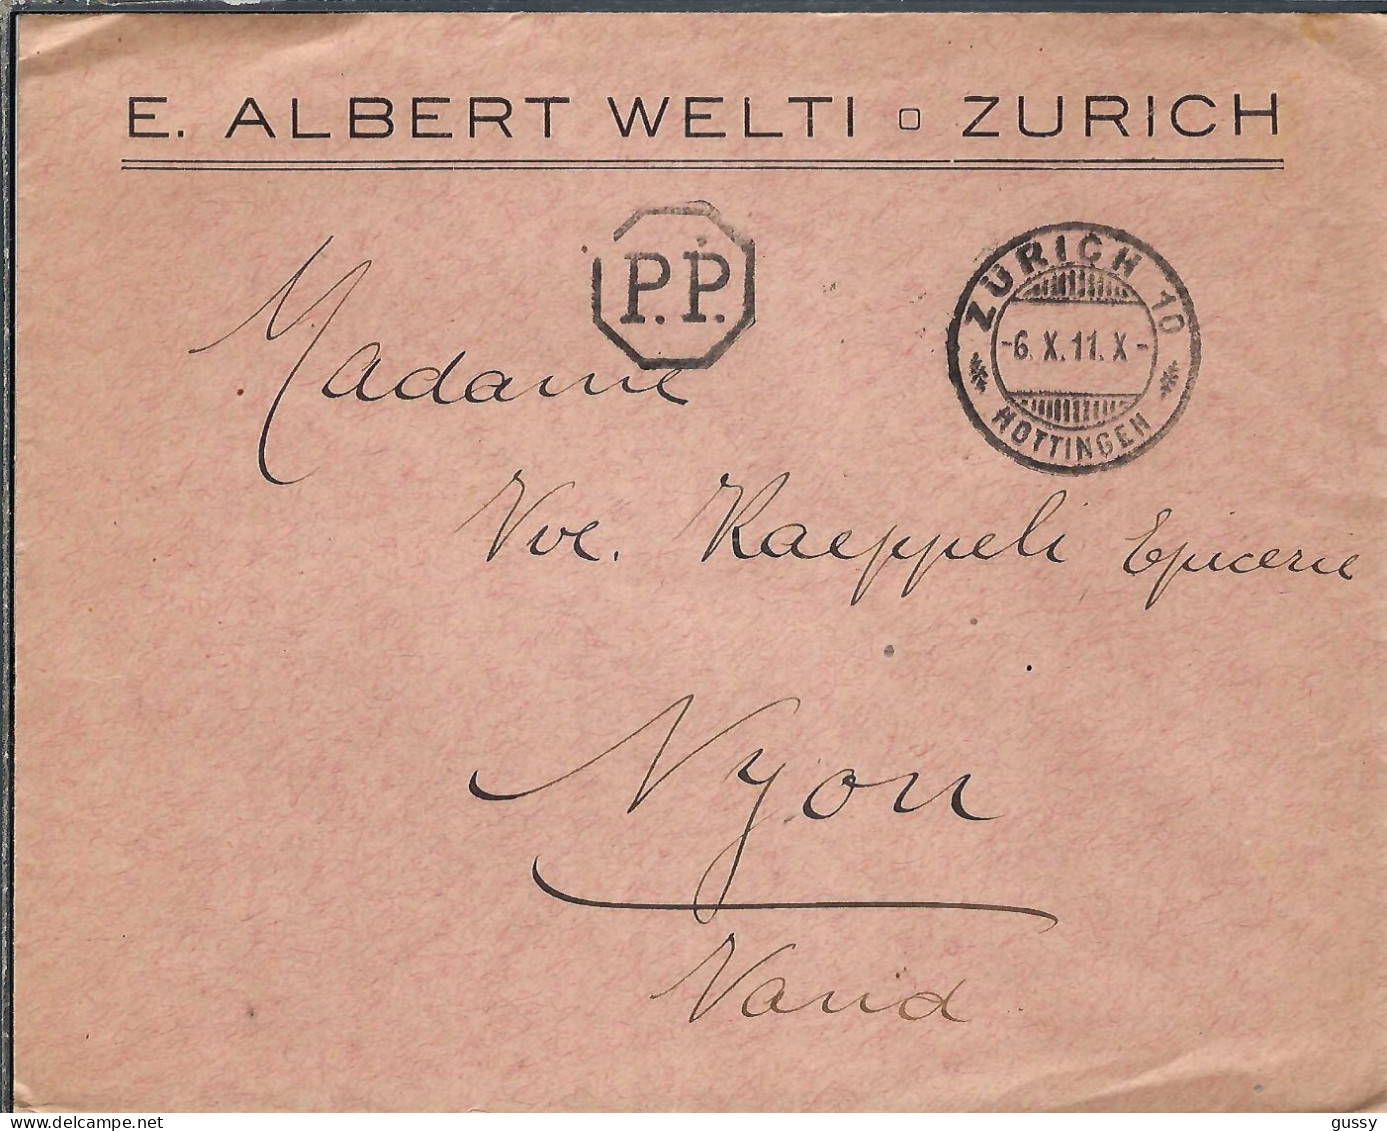 E. ALBERT WELTI ▫ ZURICH
P.P.
ZURICH 10
-6.X.11.X-
HOTTINGEN
Madame
Vve. Kaeppeli Epicerie
Nyon
Vaud
© www.delcampe.net
gussy